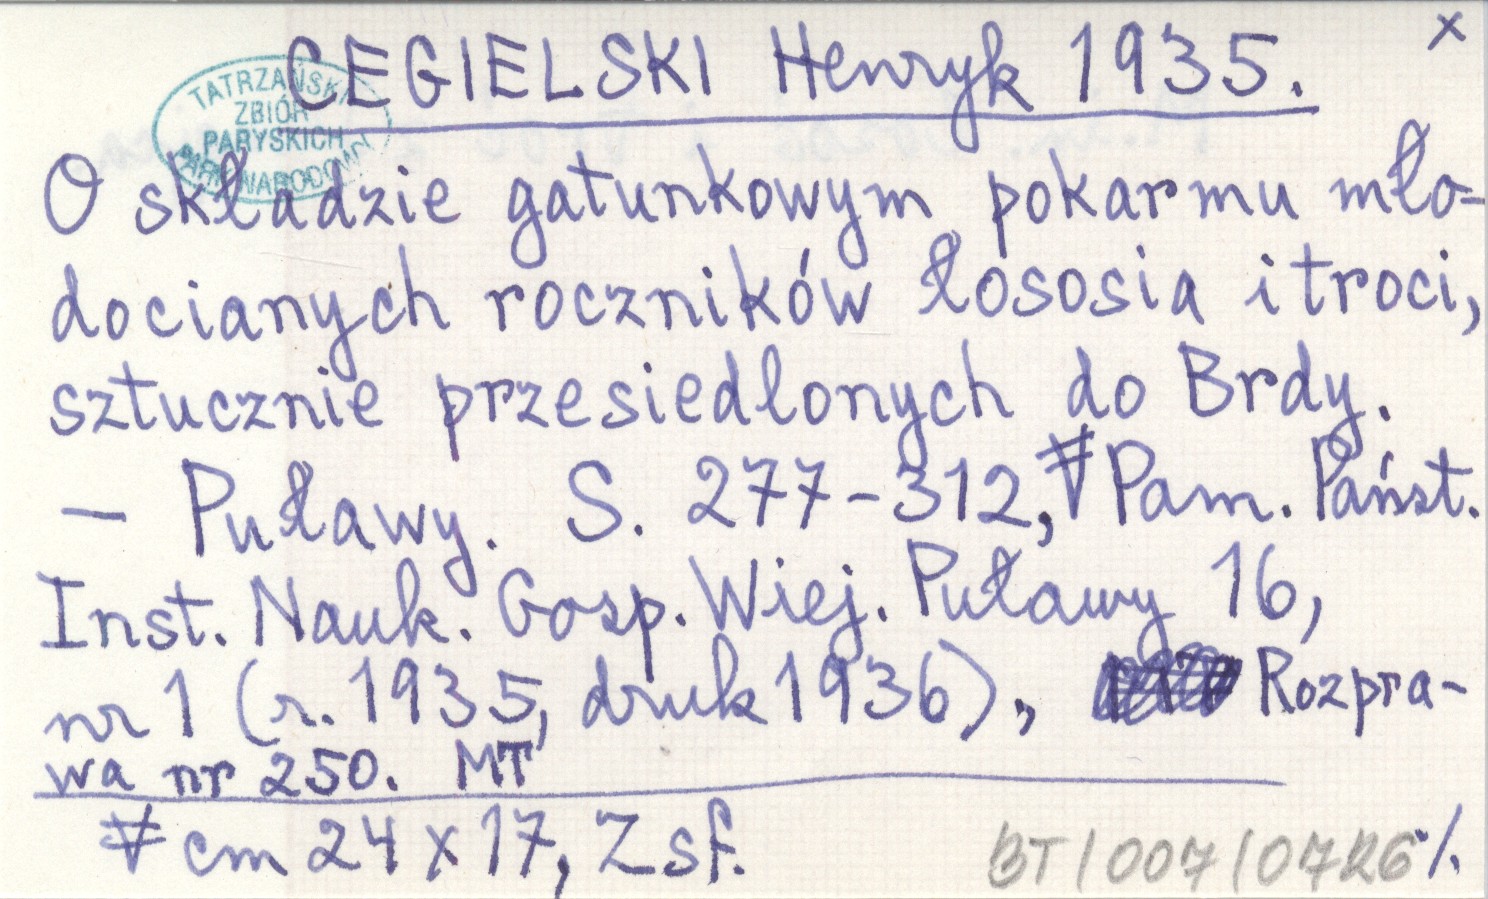 CEGIELSKI Henryk 1935.
x
TATRZAŃSKI
ZBIÓR
PARYSKICH
PARK NARODOWY
O składzie gatunkowym pokarmu mło-
docianych roczników łososia i troci,
sztucznie przesiedlonych do Brdy.
— Puławy. S. 277-312, Pam. Państ.
Inst. Nauk. Gosp. Wiej. Puławy 16,
nr 1 (r. 1935, druk 1936), Rozpra-
wa nr 250. MT
cm 24 x 17, Z sf.
BT/007/0726 ./.